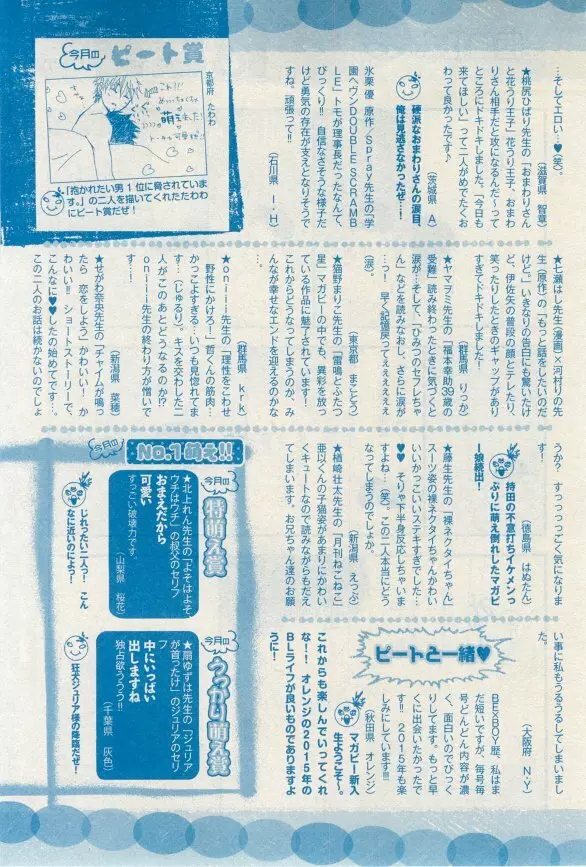 …そしてエロい…♥(笑)。
(滋賀県 智章)
★桃尻ひばり先生の「おまわりさん
と花うり王子」花うり王子、おまわ
りさん相手だと攻になるんだ〜って
ところにドキドキしました。「今日も
来てほしい」って二人がめでたくお
わって良かったです♪
(茨城県 A)
硬派なおまわりさんの涙目、
俺は見逃さなかったぜ…!
氷栗優 原作/Spray先生の「学
園ヘヴンDOUBLE SCRAMB
LE」トモが理事長だったなんて、
びっくり!! 自信なさそうな様子だ
けど勇気の存在が支えとなりそうで
すね。頑張って!!
(石川県 I・H)
今月のピート賞
京都府 たわわ
「抱かれたい男1位に脅されていま
す。」の二人を描いてくれたたわわ
にピート賞だぜ!
★七瀬はし先生(漫画)×河村りの先
生(原作)の「もっと話をしたいのだ
けど」いきなりの告白にも驚いたけ
ど、伊佐矢の普段の顔とテレたり、
笑ったりしたときのギャップがあり
すぎてドキドキしました!
(群馬県 りっか)
★ヤマヲミ先生の「福本幸助39歳の
受難」読み終わったときに気づくと
涙が…そして、「ひみつのセフレちゃ
ん」などを読みなおし、さらに涙が
…っ! 早く記憶戻ってぇぇぇぇぇ
(涙)。
(東京都 まことう)
★猫野まりこ先生の「雷鳴とふたつ
星」マガビーの中でも、異彩を放っ
ている作品に魅了されています!
これからどうなってしまうのか、み
んなが幸せなエンドを迎えるのかな
…。
(群馬県 krk)
★oniii先生の「理性をこわせ
野性にかけろー」哲くんの筋肉…
かっこよすぎる…いつも見惚れてま
す…(じゅるり)。キスを交わした二
人がこのあとどうなるのか!?
oniii先生の終わり方が憎いで
す…!
(新潟県 菜穂)
★せがわ奈央先生の「チャイムが鳴っ
たら 恋をしよう」かわいい! か
わいい!! ショートストーリーで、
こんなに♥♥したの始めてです…。
この二人のお話は続かないのでしょ
うか? すっっっっごく気になりま
す…!
(徳島県 はぬたん)
持田の不意打ちイケメンっ
ぷりに萌え倒れしたマガビ
ー娘続出!
★藤生先生の「裸ネクタイちゃん」
スーツ姿の裸ネクタイちゃんかわい
いいかっこいいステキすぎでした…
♥♥ そりゃ下半身反応しちゃいま
すよね…(笑)。この二人本当にどう
なってしまうのでしょか。
(新潟県 えっぷ)
★楢崎壮太先生の「月刊ねこねこ」
亜以くんの子猫姿があまりにかわい
くキュートなので読みながらもだえ
てしまいます。お兄ちゃん達のお願
い事に私もうるうるしてしまいまし
た。
(大阪府 N・Y)
ピートと一緒♥
BE×BOY歴、私はま
だ短いですが、毎号毎
号どんどん内容が濃
く、面白いのでびっく
りしてます。もっと早
くに出会いたかったで
す!! 2015年も楽
しみにしています!!!
(秋田県 オレンジ)
マガビー新入
生ようこそ〜。
これからも楽しんでいってくれ
な!! オレンジの2015年の
BLライフが良いものでありますよ
うに!
今月のNo.1萌え!!
今月の特萌え賞
★北上れん先生の「よそはよそ
ウチはウチ」の叔父のセリフ
おまえだから
可愛い
すっごい破壊力です。
(山梨県 桜花)
じれったい二人っ! こん
なに近いのによっ!
今月のうっかり萌え賞
★扇ゆずは先生の「ジュリア
が首ったけ」のジュリアのセリ
フ
中にいっぱい
出しますね
独占欲うううう!!
(千葉県 灰色)
狂犬ジュリア様の降臨だぜ!